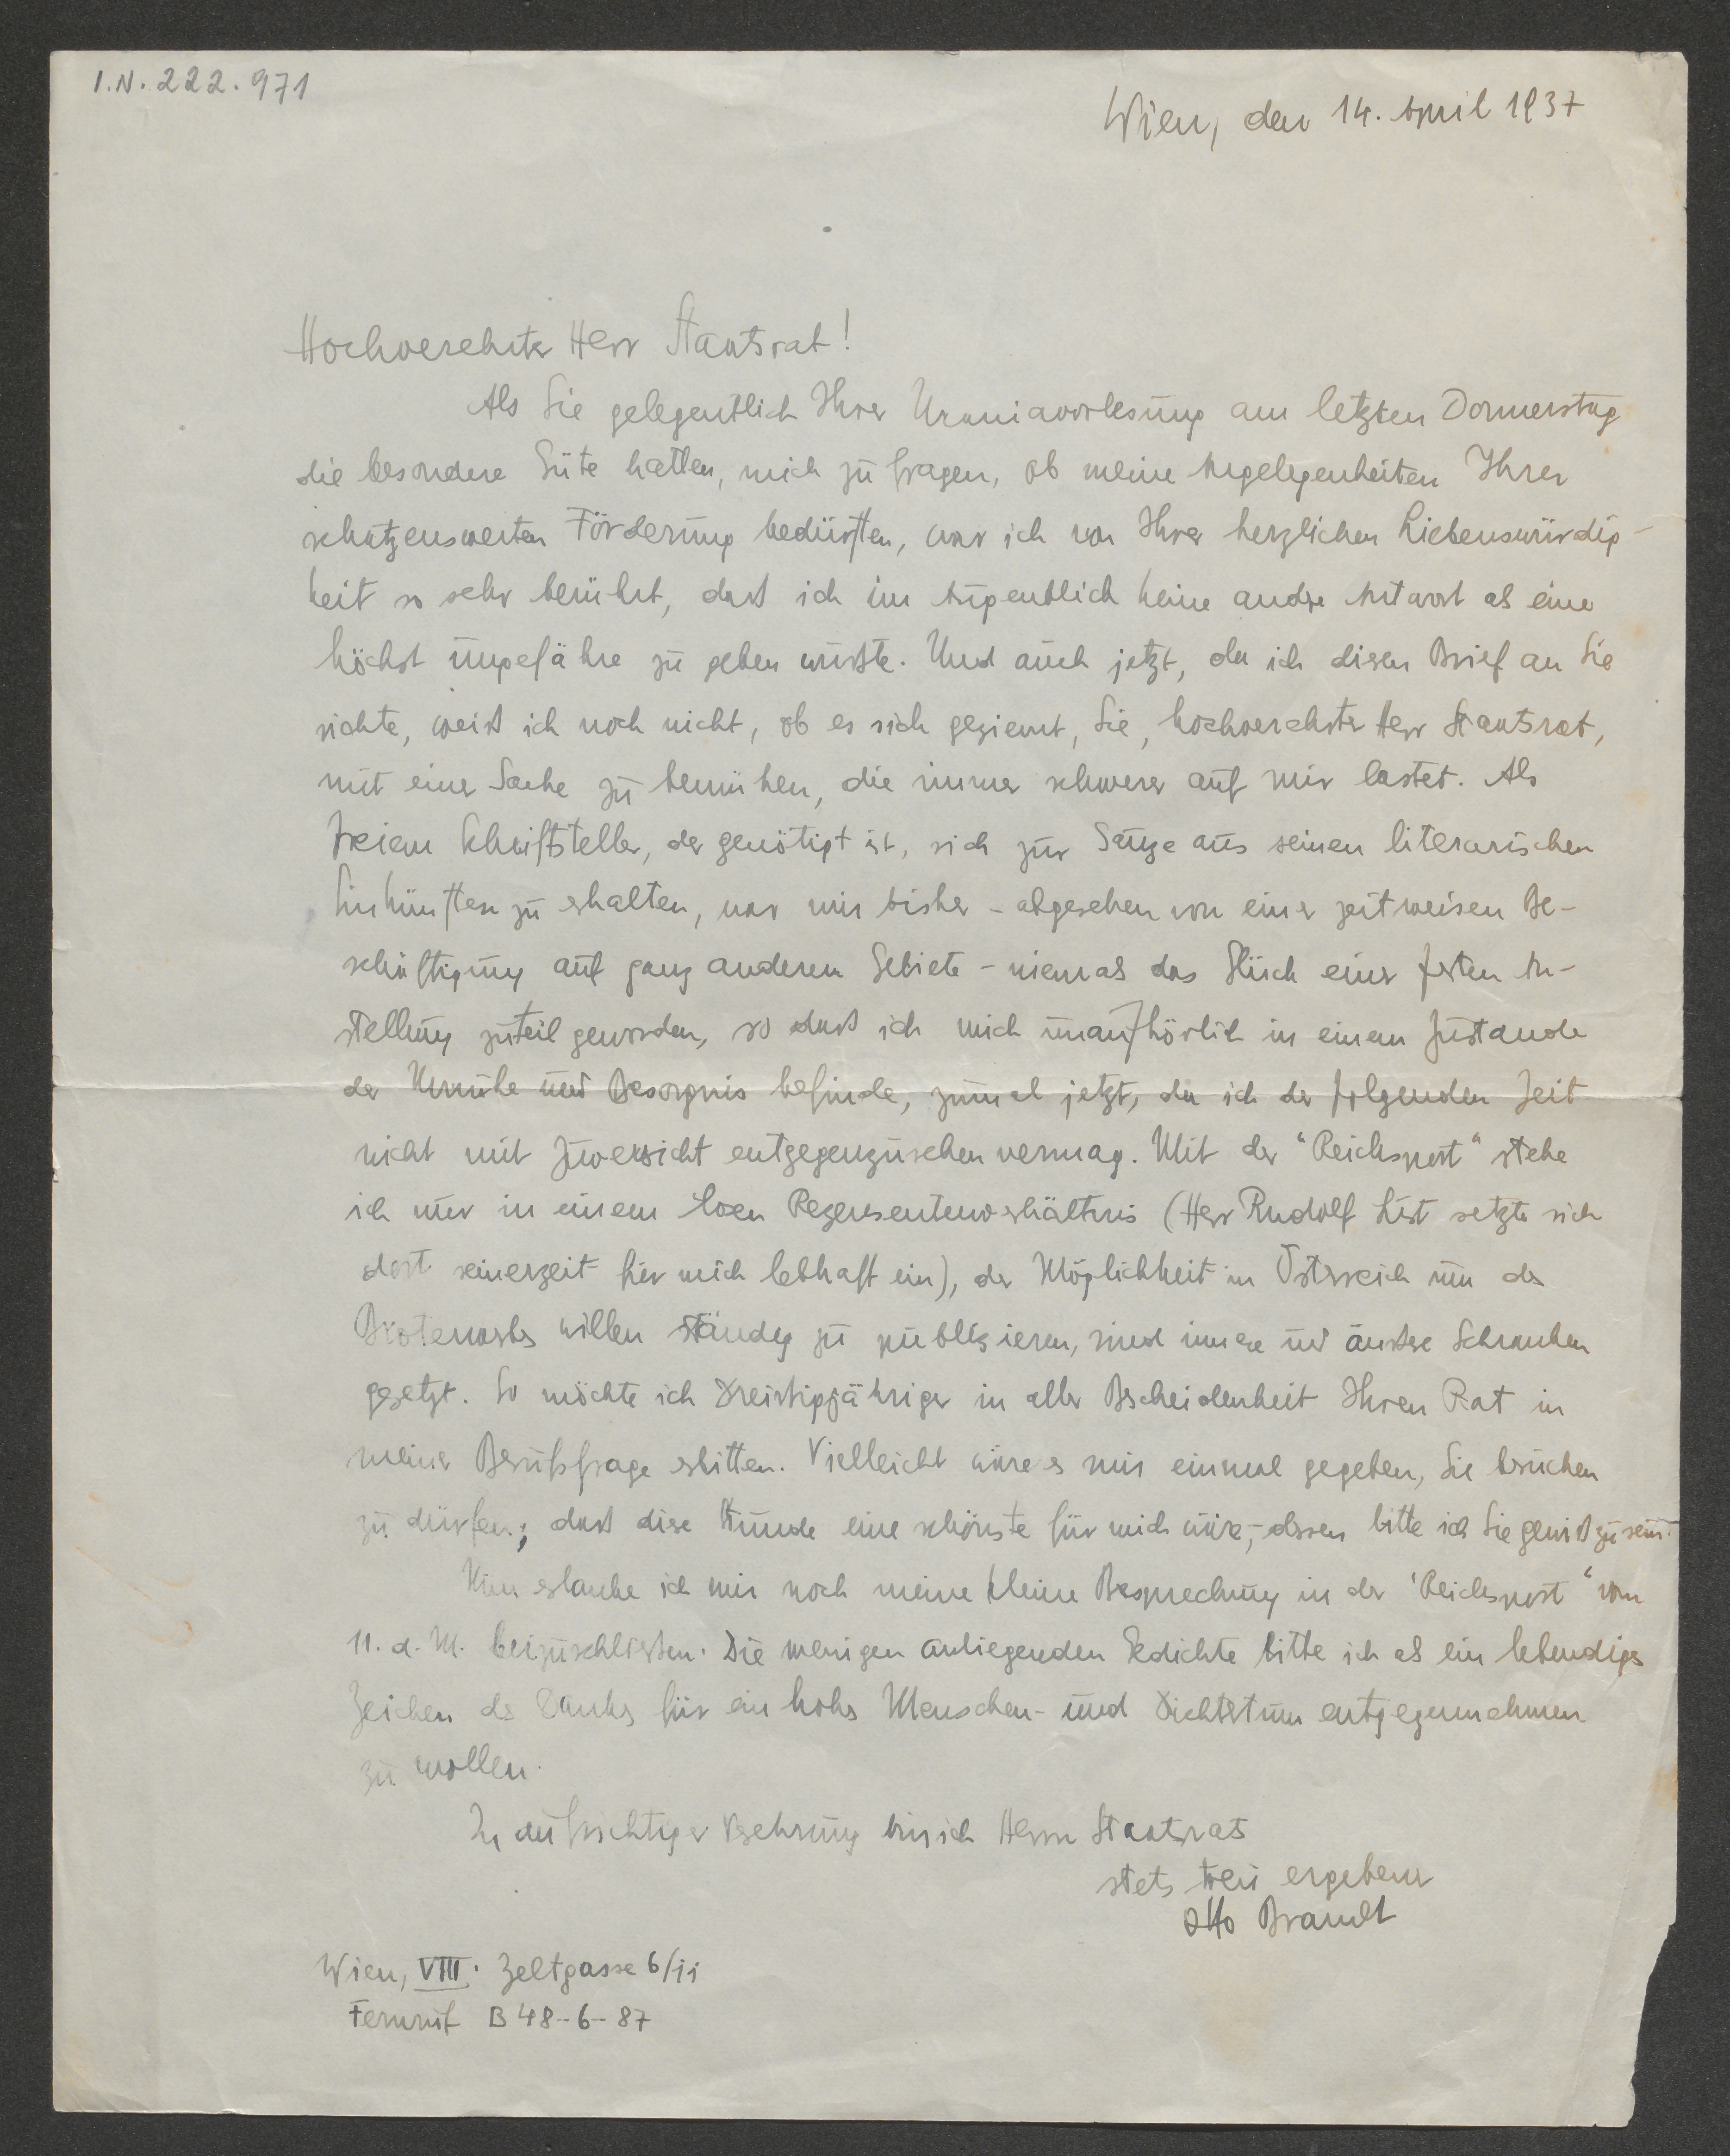 I.N. 222.971
Wien, den 14. April 1937
Hochverehrter Herr Staatsrat!
Als Sie gelegentlich Ihrer Uraniavorlesung am letzten Donnerstag
die besondere Güte hatten, mich zu fragen, ob meine Angelegenheiten Ihrer
schätzenswerten Förderung bedürften, war ich von Ihrer herzlichen Liebenswürdig-
keit so sehr berührt, daß ich im Augenblick keine andre Antwort als eine
höchst ungefähre zu geben wußte. Und auch jetzt, da ich diesen Brief an Sie
richte, weiß ich noch nicht, ob es sich geziemt, Sie, hochverehrter Herr Staatsrat,
mit einer Sache zu bemühen, die immer schwerer auf mir lastet. Als
freiem Schriftsteller, der genötigt ist, sich zur Gänze aus seinen literarischen
Einkünften zu erhalten, war mir bisher - abgesehen von einer zeitweisen Be-
schäftigung auf ganz anderem Gebiete - niemals das Glück einer festen An-
stellung zuteil geworden, so daß ich mich unaufhörlich in einem Zustande
der Unruhe und Besorgnis befinde, zumal jetzt, da ich der folgenden Zeit
nicht mit Zuversicht entgegenzusehen vermag. Mit der "Reichspost" stehe
ich nur in einem losen Rezensentenverhältnis (Herr Rudolf List setzte sich
dort seinerzeit für mich lebhaft ein), der Möglichkeit in Österreich um des
Broterwerbs willen ständig zu publizieren, sind innere und äußere Schranken
gesetzt. So möchte ich Dreißigjähriger in aller Bescheidenheit Ihren Rat in
meiner Berufsfrage erbitten. Vielleicht wäre es mir einmal gegeben, Sie besuchen
zu dürfen; daß diese Stunde eine schönste für mich wäre, - dessen bitte ich Sie gewiß zu sein.
Nun erlaube ich mir noch meine kleine Besprechung in der "Reichspost" vom
11. d. M. beizuschließen. Die wenigen anliegenden Gedichte bitte ich als ein lebendiges
Zeichen des Dankes für ein hohes Menschen- und Dichtertum entgegennehmen
zu wollen.
In aufrichtiger Verehrung bin ich Herrn Staatsrats
stets treu ergebener
Otto Brandt
Wien, VIII. Zeltgasse 6/11
Fernruf B 48-6-87